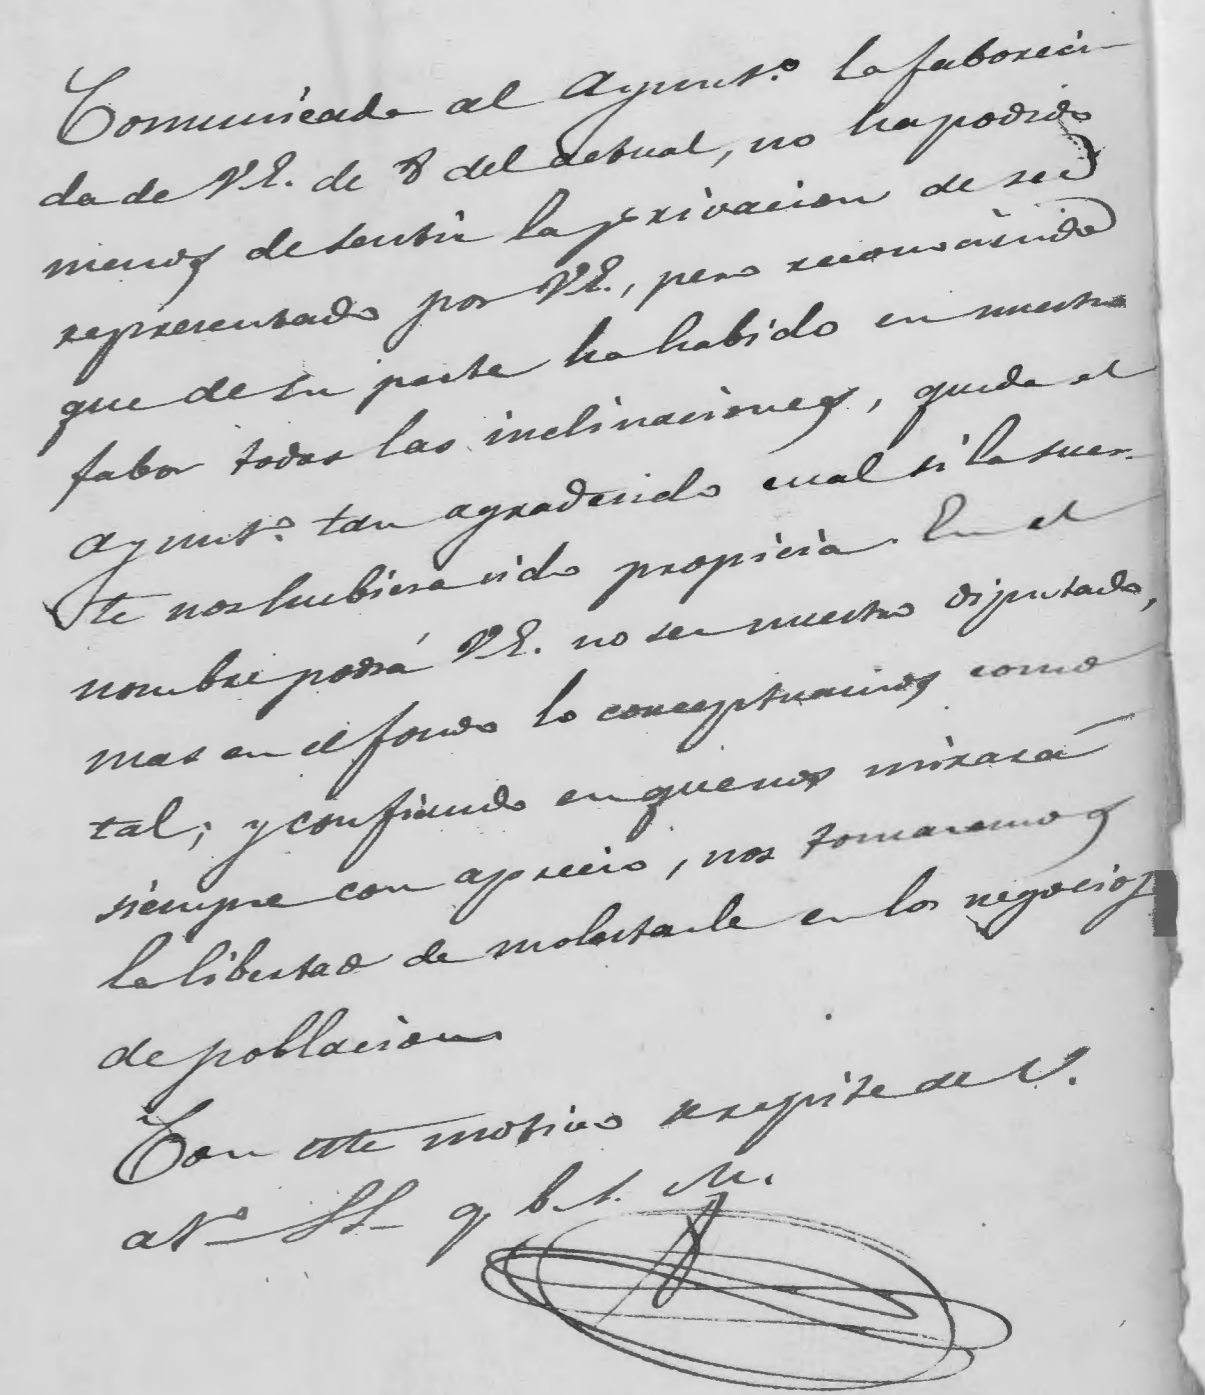 Comunicada al Ayunt.º la faboreci-
da de V.E. de 8 del actual, no ha podido
menos de sentir la privacion de ser
representado por V.E., pero reconociendo
que de su parte ha habido en nuestro
fabor todas las inclinaciones, queda el
Ayunt.º tan agradecido cual si la suer-
te nos hubiera sido propicia. En el
nombre podrá V.E. no ser nuestro diputado,
mas en el fondo lo conceptuamos como
tal; y confiando en que nos mirará
siempre con aprecio, nos tomaremos
la libertad de molestarle en los negocios
de poblacion
Con este motivo se repite de V.
at.º SS q b. s. M.